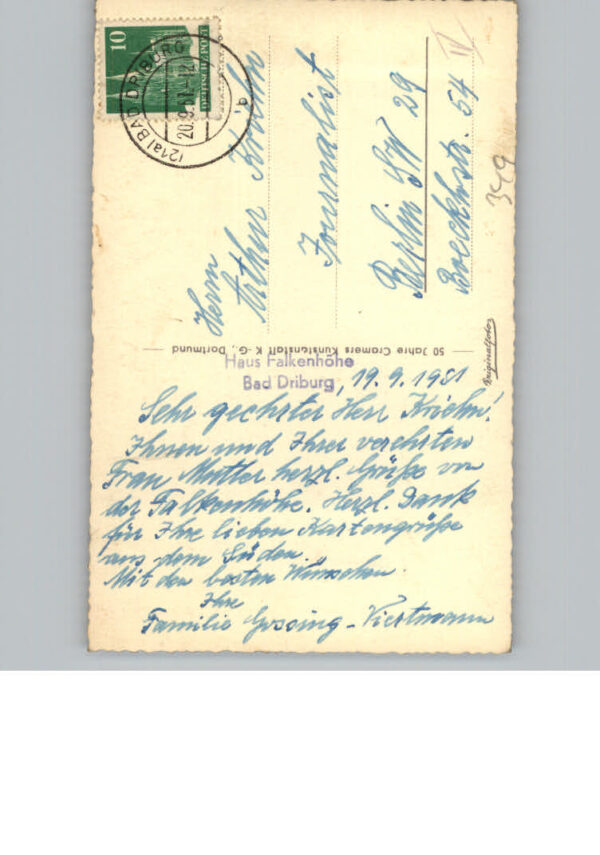 10
DEUTSCHE POST
(21a) BAD DRIBURG
20.9.51
Herrn
Arthur Kriehn
Journalist
Berlin SW 29
Boeckhstr. 54
IV
349
50 Jahre Cramers Kunstanstalt K.-G., Dortmund
Originalfoto
Haus Falkenhöhe
Bad Driburg, 19.9.1951
Sehr geehrter Herr Kriehn!
Ihnen und Ihrer verehrten
Frau Mutter herzl. Grüße von
der Falkenhöhe. Herzl. Dank
für Ihre lieben Kartengrüße
aus dem Süden.
Mit den besten Wünschen
Ihre
Familie